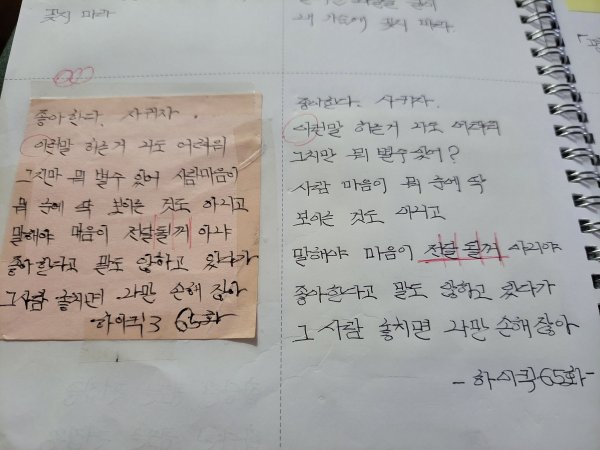 꽂지 마라
내 가슴에 꽂지 마라.
좋아한다. 사귀자.
이런말 하는거 나도 어려워
그치만 뭐 별수 있어 사람마음이
뭐 눈에 딱 보이는 것도 아니고
말해야 마음이 전달될께 아냐
좋아한다고 말도 않하고 있다가
그사람 놓치면 나만 손해 잖아
하이퀵3 65화
좋아한다. 사귀자.
이런말 하는거 나도 어려워
그치만 뭐 별수 있어?
사람 마음이 뭐 눈에 딱
보이는 것도 아니고
말해야 마음이 전달 될께 아니야
좋아한다고 말도 않하고 있다가
그 사람 놓치면 나만 손해 잖아
-하이퀵65화-